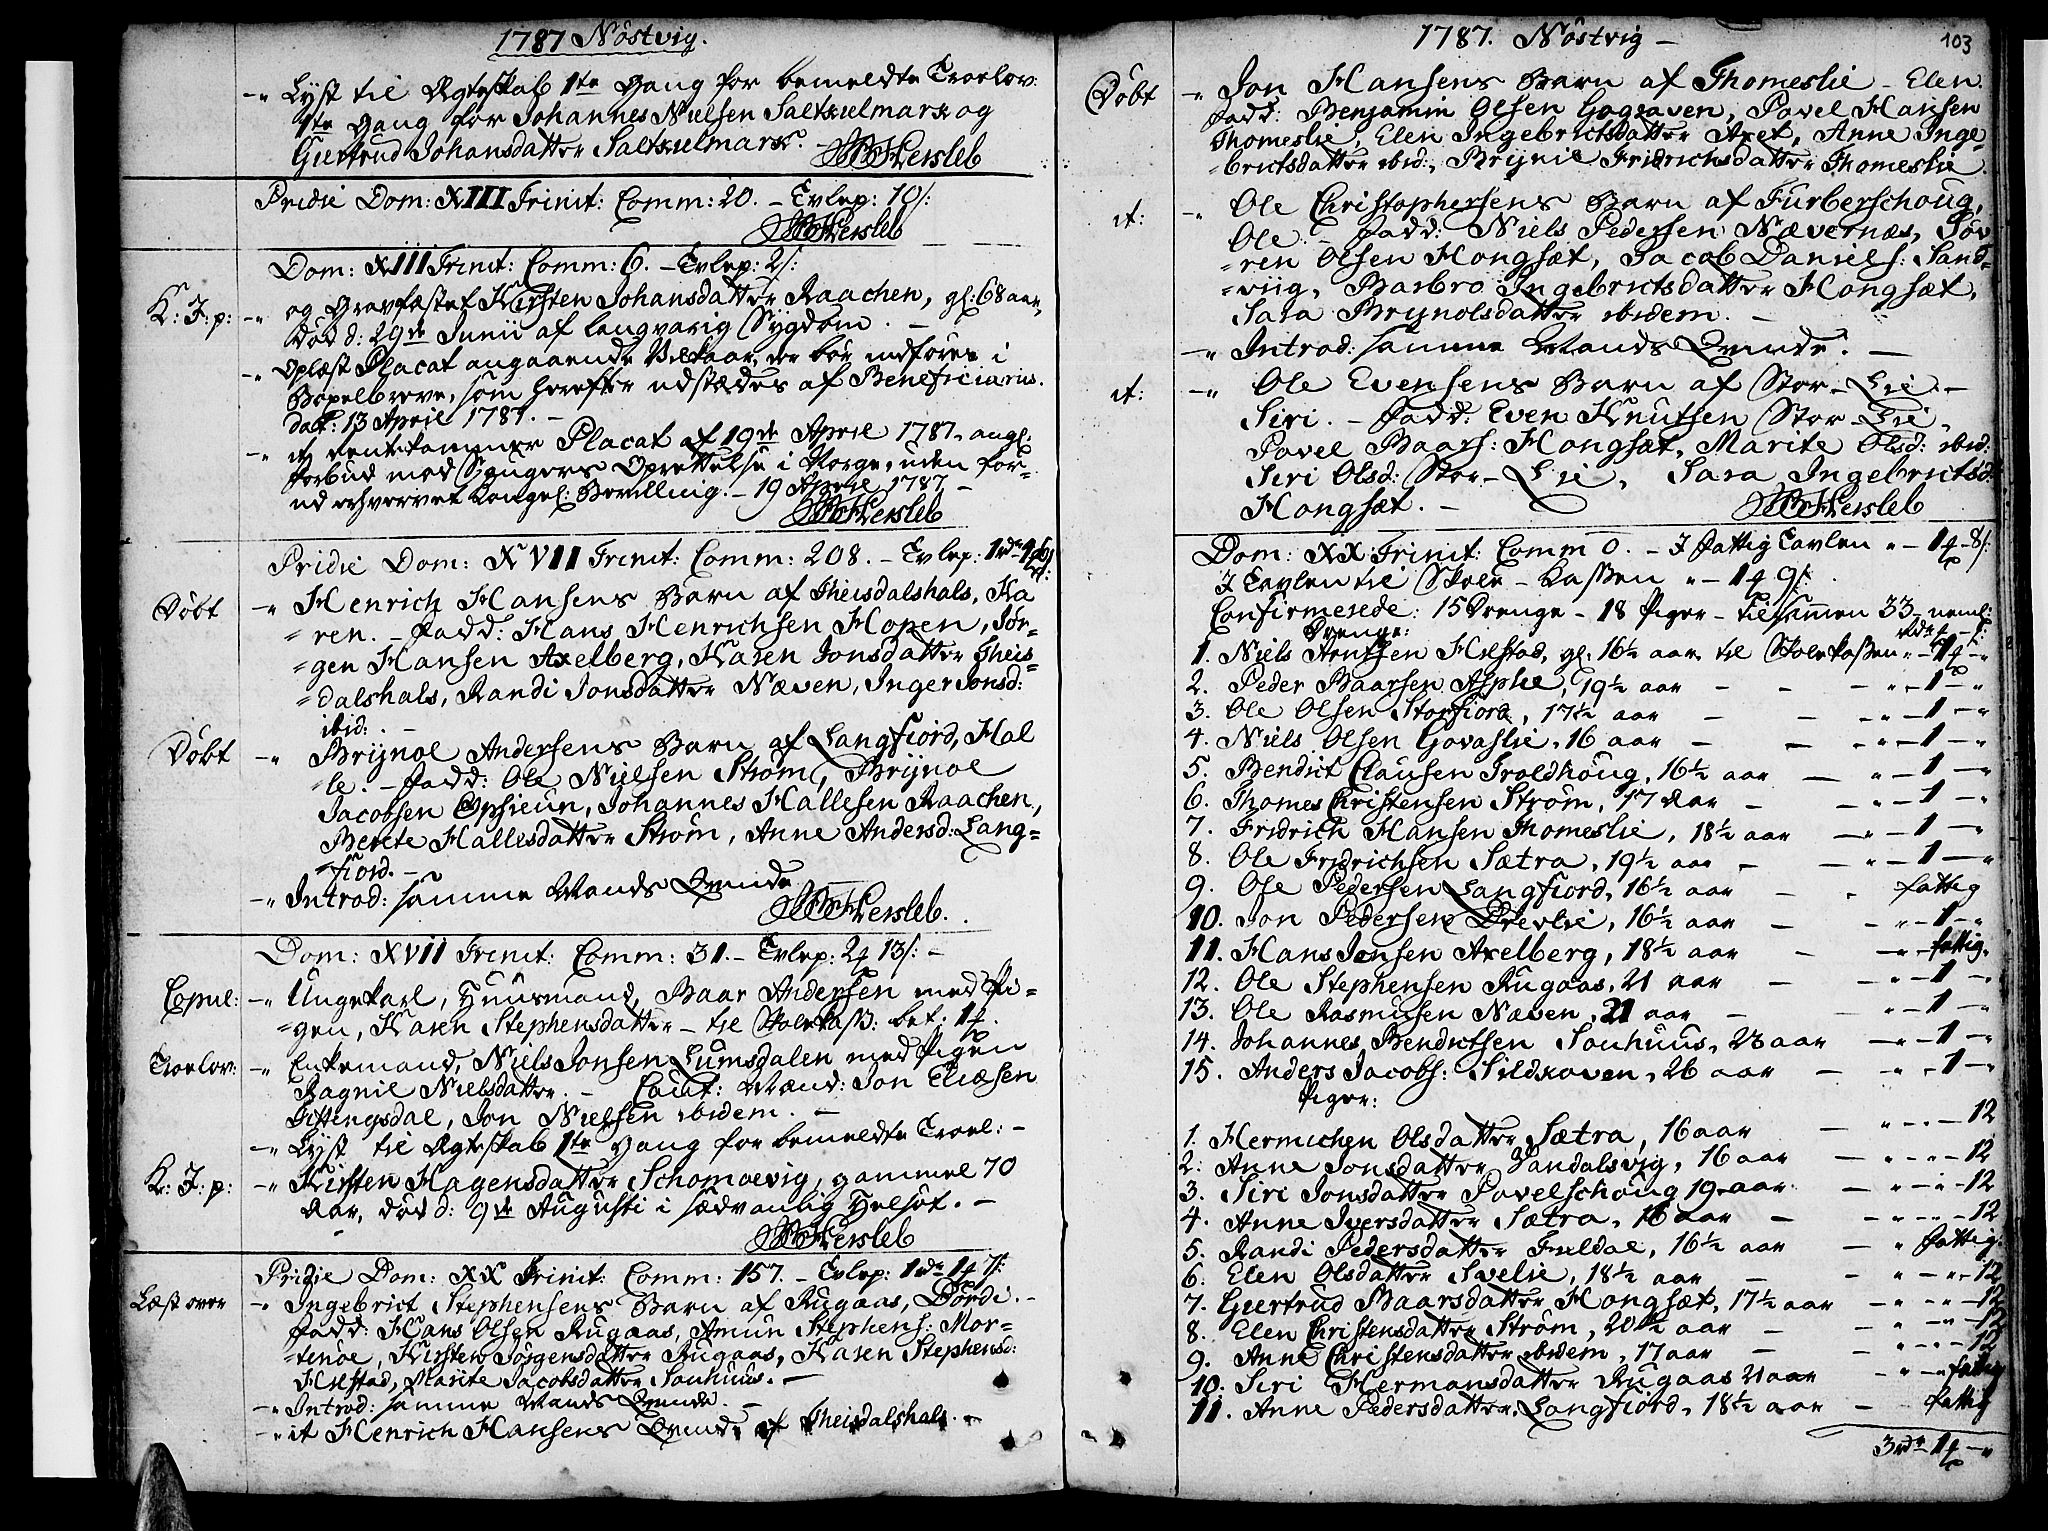 1787 Nöstvig.
-" Lyst til Ægteskab 1te Gang for bemeldte Troelov:
1te Gang for Johannes Nielsen Saltkielmark og
Giertrud Johansdatter Saltkielmark. -
Hersleb
Pridie Dom: XIII Trinit: Comm: 20. - Tvlep: 10/:
Hersleb
Dom: XIII Trinit: Comm: 6. - Tvlep: 2/:
K: J: p: -" og Gravfæstet Kirsten Johansdatter Raachen, gl: 68 aar,
død d: 29de Junii af langvarig Sygdom. -
-" Oplæst Placat angaaende Vilkaar, der bör indföres i
Böxelbreve, som herefter udstædes af Beneficiarus.
dat: 13 April 1787. -
-" it Rentekammer Placat af 19de April 1787. angl:
forbud mod Saugers Oprettelse i Norge, uden for-
ud erhvervet Kongel: Bevilling. - 19 April 1787. -
Hersleb
Pridie Dom: XVII Trinit: Comm: 208. - Tvlep: 1rdr
Döbt -" Henrich Hansens Barn af Theisdalshals, Ka
=ren. - Fadd: Hans Henrichsen Hopen, Jör=
=gen Hansen Axelberg, Karen Jonsdatter Theis=
=dalshals, Randi Jonsdatter Næven, Inger Jonsd:
ibid: -
Döbt -" Brijnol Andersens Barn af Langfiord, Hal
=le. - Fadd: Ole Nielsen Ström, Brijnol
Jacobsen Opsieun, Johannes Hallesen Raachen,
Berete Hallesdatter Ström, Anne Andersd: Lang=
=fiord. -
-" Introd: samme Mands Qvinde
Hersleb.
Dom: XVII Trinit: Comm: 31. - Tvlep: 2 13/: -
Copul: -" Ungekarl, Huusmand, Baar Andersen med Pi=
=gen, Karen Stephensdatter - til Skolekass: bet: 1
Troelov: -" Enkemand, Niels Jonsen Lumsdalen med Pigen
Ragnil Nielsdatter. - Caut: Mænd: Jon Eliæsen
Giftingsdal, Jon Nielsen ibidem. -
-" Lyst til Ægteskab 1te Gang for bemeldte Troel: -
K: J: p: -" Kirsten Hagensdatter Schomaevig, gammel 70
Aar, död d: 9de Augusti i sædvanlig Helsot. -
Hersleb
Pridie Dom: XX Trinit: Comm: 157. - Tvlep: 1rdr 1 7/:
Læst over -" Ingebrict Stephensens Barn af Rugaas, Dordi. -
Fadd: Hans Olsen Rugaas, Amun Stephens: Mor=
=tenöe, Kirsten Jörgensdatter Rugaas, Karen Stephensd:
Hilstad, Marite Jacobsdatter Sauhuus. -
-" Introd: samme Mands Qvinde. -
-" it Henrich Hansens Qvinde af Theisdalshals. -
1787. Nöstvig -
103
Döbt -" Jon Hansens Barn af Thomeslie - Elen.
Fadd: Benjamin Olsen Gograven, Pavel Hansen
Thomeslie, Elen Ingebrictsdatter Axet, Anne Inge=
=brictsdatter ibid:, Brijnil Fridrichsdatter Thomeslie.
it: -" Ole Christophersens Barn af Furberschoug,
Ole. - Fadd: Niels Pedersen Nævernæs, Sör
=ren Olsen Hongsæt, Jacob Daniels: Sand=
=viig, Barbro Ingebrictsdatter Hongsæt,
Sara Brynolsdatter ibidem. -
-" Introd: samme Mands Qvinde. -
it: -" Ole Evensens Barn af Stor-Lie. -
Siri. - Fadd: Even Knutsen Stor-Lie,
Pavel Baars: Hongsæt, Marite Olsd: ibid:
Siri Olsd: Stor-Lie, Sara Ingebrictsd:
Hongsæt. -
Hersleb
Dom: XX Trinit: Comm 0. - I fattig Tavlen " - 1 - 8/:
I Tavlen til Skole-Kassen " - 1 9/:
Confirmerede: 15 Drenge - 18 Piger - tilsamen 33 neml:
Drenge:
1. Niels Arntsen Hilstad, gl: 16½ aar til Skolekassen " - 1 - "
2. Peder Baarsen Asplie, 19½ aar - - - " - 1 - "
3. Ole Olsen Storfiord, 17½ aar - - - " - 1 - "
4. Niels Olsen Govaslie, 16 aar - - - " - 1 - "
5. Bendict Clausen Troldhoug, 16½ aar - " - 1 - "
6. Thomes Christensen Ström, 17 Aar - " - 1 - "
7. Fridrich Hansen Thomeslie, 18½ aar - " - 1 - "
8. Ole Fridrichsen Sætra, 19½ aar - - " - 1 - "
9. Ole Pedersen Langfiord, 16½ aar - - fattig
10. Jon Pedersen Drevlie, 16½ aar - - " - 1 - "
11. Hans Jensen Axelberg, 18½ aar - " - fattig.
12. Ole Stephensen Rugaas, 21 aar - - " - 1 - "
13. Ole Rasmusen Næven, 21 aar - - " - 1 - "
14. Johannes Bendictsen Sauhuus, 23 aar - " - 1 - "
15. Anders Jacobs: Sildkoven, 26 aar - " - 1 - "
Piger:
1. Hermichen Olsdatter Sætra, 16 aar - " - " - 12
2: Anne Jonsdatter Vandalsvig, 16 aar - " - " - 12
3. Siri Jonsdatter Povelschoug 19 aar - " - " - 12
4. Anne Iversdatter Sætra, 16 aar - - " - " - 12
5. Randi Pedersdatter Fuldal, 16½ aar - " fattig.
6. Elen Olsdatter Svelie, 18½ aar - - " - " - 12
7. Giertrud Baarsdatter Hongsæt, 17½ aar - " - " - 12
8. Elen Christensdatter Ström, 20½ aar - - " - " - 12
9. Anne Christensdatter ibidem, 17 aar - - " - " - 12
10. Siri Hermansdatter Rugaas 21 aar - " - " - fattig
11. Anne Pedersdatter, Langfiord, 18½ aar - fattig
3rdr 1 - "